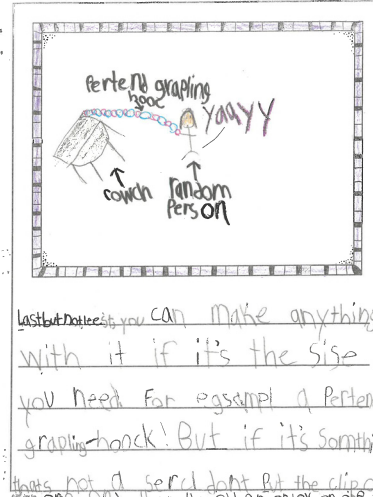 Pertend grapling
hooc
yaayy
cowch
random
person
Last but not least you can make anything
with it if it's the sise
you need for egsampl a Perten
grapling-honck! But if it's Somthi
thats not a
dont Put the clip